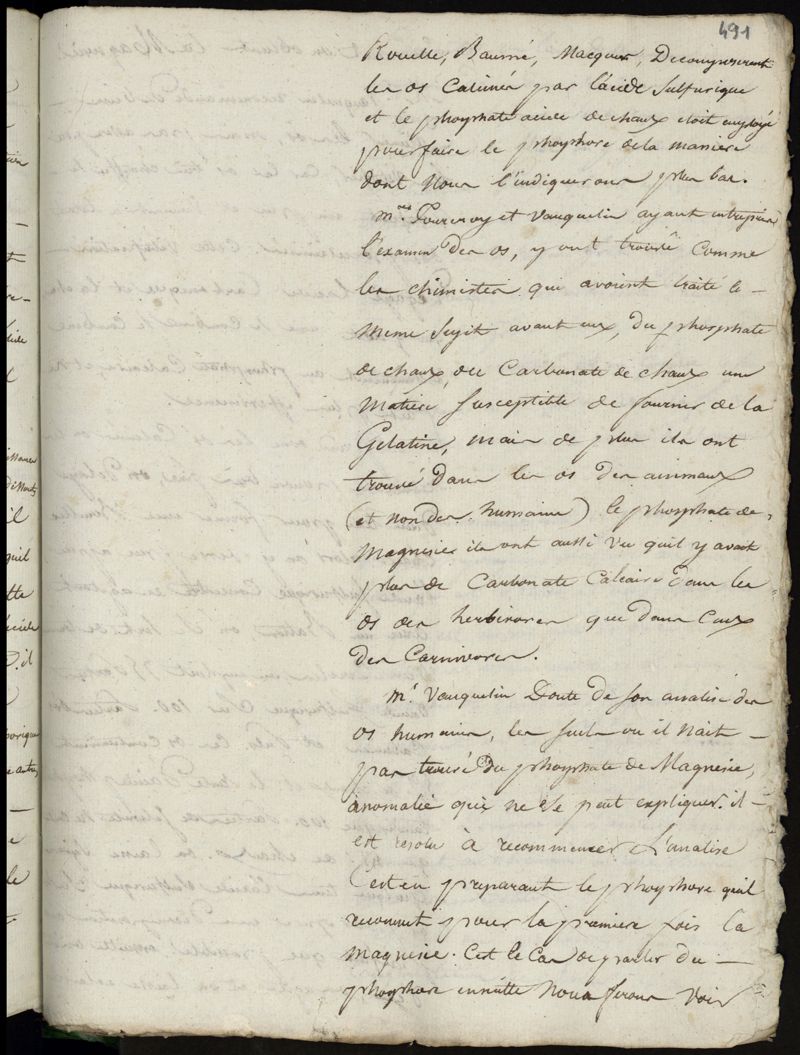 491
Rouelle, Baumé, Macquer, Decomposerent
les os Calcinés par l'acide Sulfurique
et le phosphate acide de chaux etoit employé
pour faire le phosphore de la maniere
dont Nous l'indiquerons plus bas.
mrs Fourcroy et Vauquelin ayant entrepris
l'examen des os, y ont trouvé comme
les chimistes qui avoient traité le
Meme Sujet avant eux, du phosphate
de chaux, du Carbonate de chaux une
Matiere Susceptible de fournir de la
Gelatine, mais de plus ils ont
trouvé dans les os des animaux
(et non des humains) le phosphate de
Magnesie ils ont aussi vu quil y avait
plus de Carbonate Calcaire dans les
os des herbivores que dans Ceux
des Carnivores.
mr Vauquelin Doute de son analise des
os humains, les seuls ou il N'ait
pas trouvé du phosphate de Magnesie,
anomalie qui ne se peut expliquer. il
est resolu à recommencer L'analise
C'est en preparant le phosphore quil
reconnut pour la premiere fois la
magnesie. C'est le Cas de parler du
phosphore ensuitte Nous ferons Voir